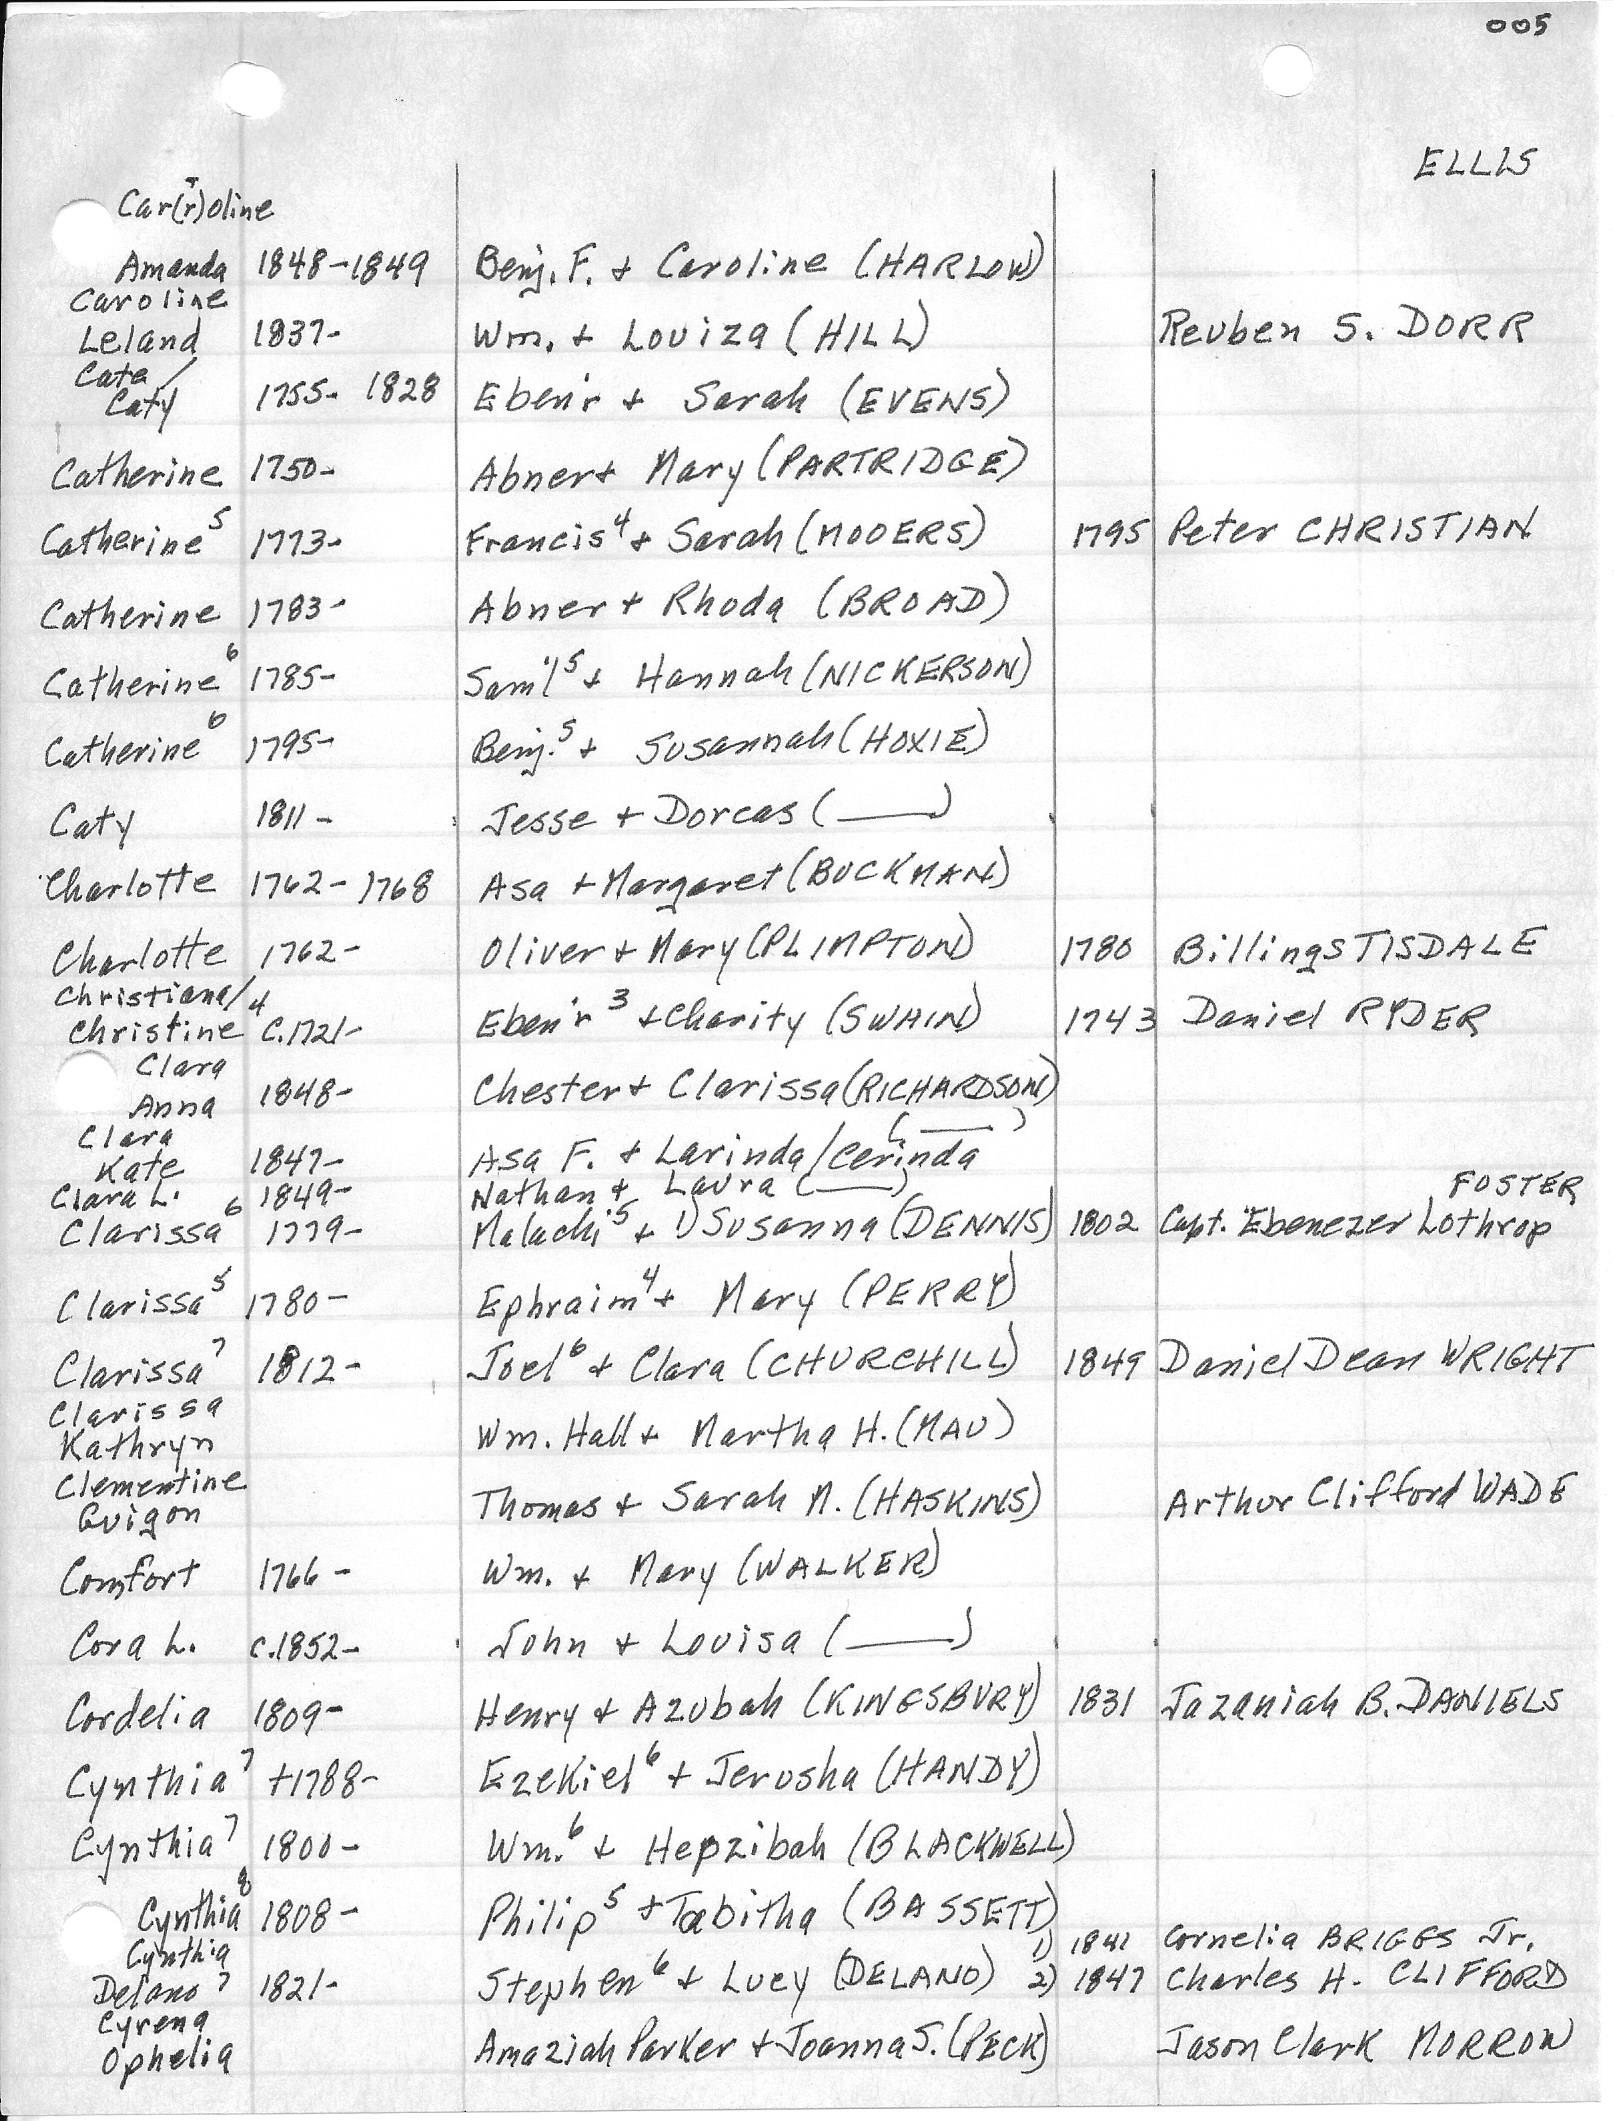 005
ELLIS
Car(r)oline
Amanda 1848-1849 Benj. F. + Caroline (HARLOW)
Caroline
Leland 1837- Wm. + Louiza (HILL) Reuben S. DORR
Cate/
Caty 1755- 1828 Eben'r + Sarah (EVENS)
Catherine 1750- Abner + Mary (PARTRIDGE)
Catherine⁵ 1773- Francis⁴ + Sarah (MOOERS) 1795 Peter CHRISTIAN
Catherine 1783- Abner + Rhoda (BROAD)
Catherine⁶ 1785- Sam'l⁵ + Hannah (NICKERSON)
Catherine⁶ 1795- Benj.⁵ + Susannah (HOXIE)
Caty 1811- Jesse + Dorcas (___)
Charlotte 1762-1768 Asa + Margaret (BUCKMAN)
Charlotte 1762- Oliver + Mary (PLIMPTON) 1780 Billings TISDALE
Christiana/
Christine⁴ C.1721- Eben'r³ + Charity (SWAIN) 1743 Daniel RYDER
Clara
Anna 1848- Chester + Clarissa (RICHARDSON)
Clara (___)
Kate 1847- Asa F. + Larinda/Cerinda
Clara L. 1849- Nathan + Laura (___) FOSTER
Clarissa⁶ 1779- Malachi⁵ + 1) Susanna (DENNIS) 1802 Capt. Ebenezer Lothrop
Clarissa⁵ 1780- Ephraim⁴ + Mary (PERRY)
Clarissa⁷ 1812- Joel⁶ + Clara (CHURCHILL) 1849 Daniel Dean WRIGHT
Clarissa
Kathryn Wm. Hall + Martha H. (MAU)
Clementine
Guigon Thomas + Sarah M. (HASKINS) Arthur Clifford WADE
Comfort 1766- Wm. + Mary (WALKER)
Cora L. c.1852- John + Louisa (___)
Cordelia 1809- Henry + Azubah (KINGSBURY) 1831 Jazaniah B. DANIELS
Cynthia⁷ +1788- Ezekiel⁶ + Jerusha (HANDY)
Cynthia⁷ 1800- Wm.⁶ + Hepzibah (BLACKWELL)
Cynthia⁸ 1808- Philip⁵ + Tabitha (BASSETT)
Cynthia 1) 1841 Cornelia BRIGGS Jr.
Delano⁷ 1821- Stephen⁶ + Lucy (DELANO) 2) 1847 Charles H. CLIFFORD
Cyrena
Ophelia Amaziah Parker + Joanna S. (PECK) Jason Clark MORROW